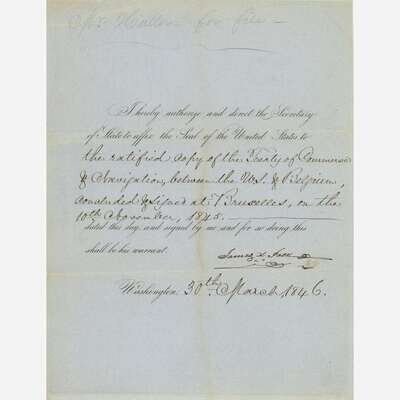 for file —
I hereby authorize and direct the Secretary
of State to affix the Seal of the United States to
the ratified copy of the Treaty of Commerce
& Navigation, between the U.S. & Belgium,
concluded & signed at Brusselles, on the
10th November, 1845.
dated this day, and signed by me and for so doing this
shall be his warrant.
James K. Polk
Washington, 30th March, 1846.